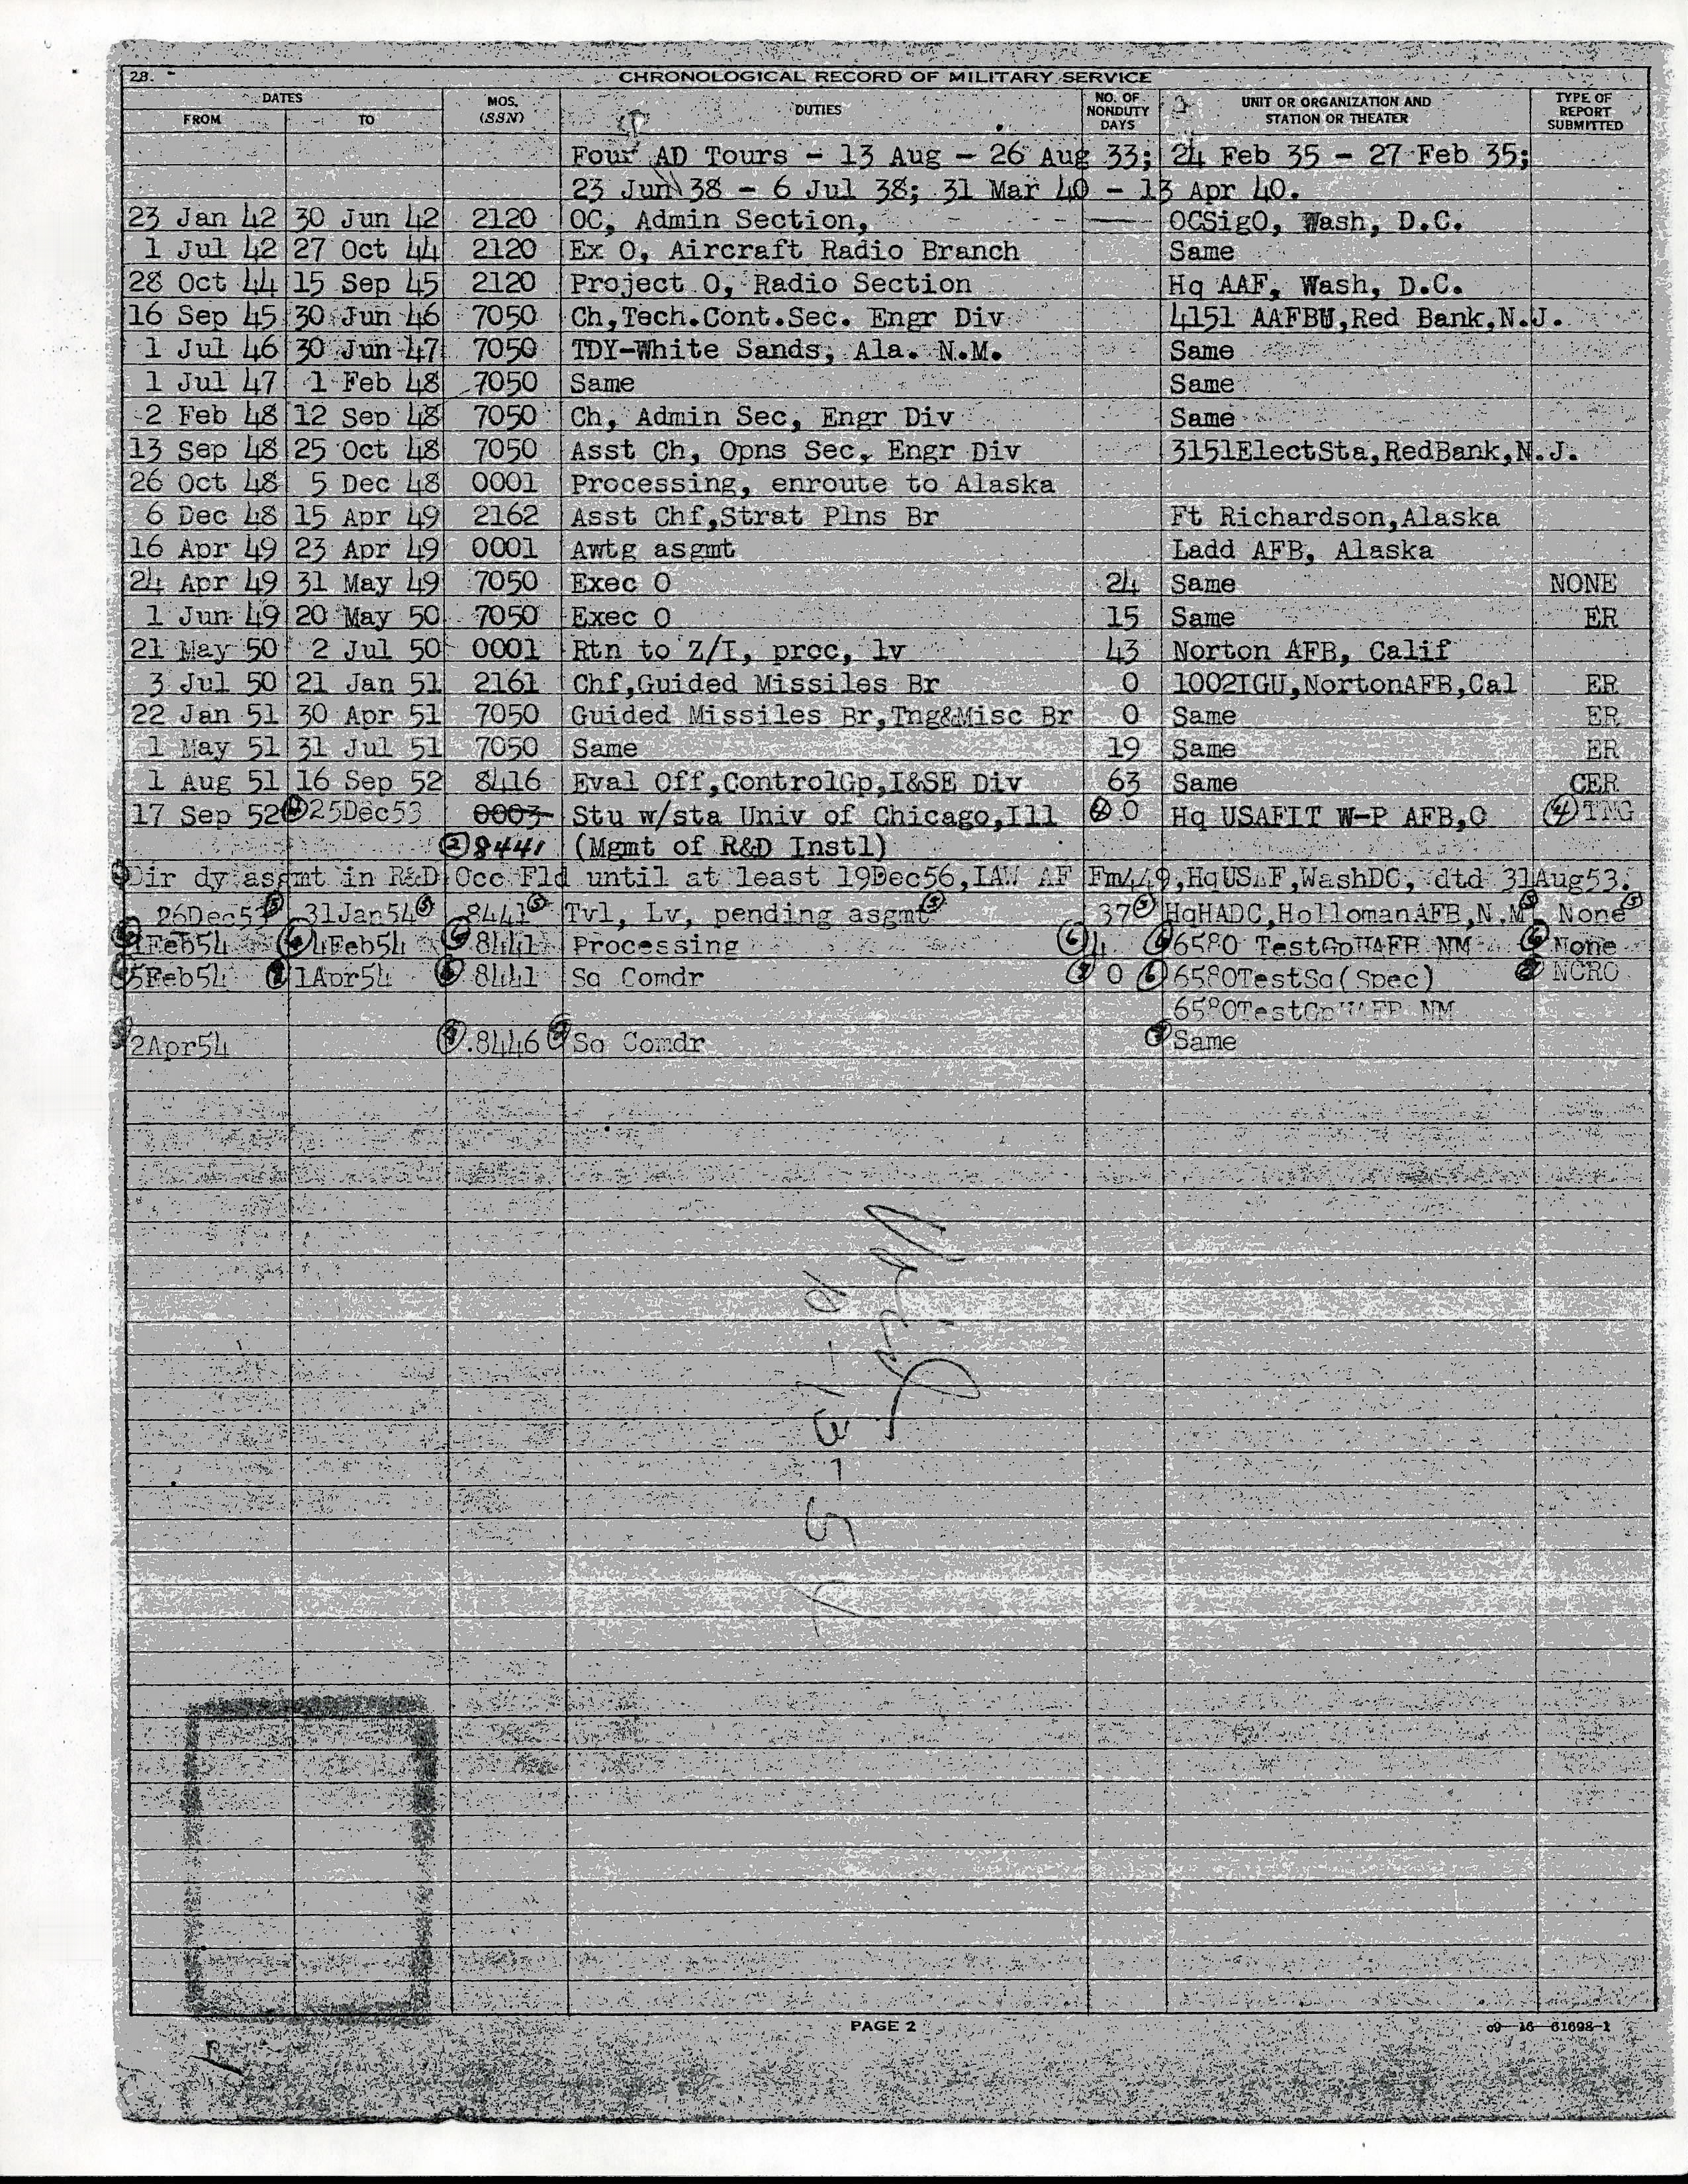 28. CHRONOLOGICAL RECORD OF MILITARY SERVICE
DATES MOS. (SSN) DUTIES NO. OF NONDUTY DAYS UNIT OR ORGANIZATION AND STATION OR THEATER TYPE OF REPORT SUBMITTED
FROM TO
Four AD Tours - 13 Aug - 26 Aug 33; 24 Feb 35 - 27 Feb 35;
23 Jun 38 - 6 Jul 38; 31 Mar 40 - 13 Apr 40.
23 Jan 42 30 Jun 42 2120 OC, Admin Section, OCSigO, Wash, D.C.
1 Jul 42 27 Oct 44 2120 Ex O, Aircraft Radio Branch Same
28 Oct 44 15 Sep 45 2120 Project O, Radio Section Hq AAF, Wash, D.C.
16 Sep 45 30 Jun 46 7050 Ch,Tech.Cont.Sec. Engr Div 4151 AAFBU,Red Bank,N.J.
1 Jul 46 30 Jun 47 7050 TDY-White Sands, Ala. N.M. Same
1 Jul 47 1 Feb 48 7050 Same Same
2 Feb 48 12 Sep 48 7050 Ch, Admin Sec, Engr Div Same
13 Sep 48 25 Oct 48 7050 Asst Ch, Opns Sec, Engr Div 3151ElectSta,RedBank,N.J.
26 Oct 48 5 Dec 48 0001 Processing, enroute to Alaska
6 Dec 48 15 Apr 49 2162 Asst Chf,Strat Plns Br Ft Richardson,Alaska
16 Apr 49 23 Apr 49 0001 Awtg asgmt Ladd AFB, Alaska
24 Apr 49 31 May 49 7050 Exec O 24 Same NONE
1 Jun 49 20 May 50 7050 Exec O 15 Same ER
21 May 50 2 Jul 50 0001 Rtn to Z/I, proc, lv 43 Norton AFB, Calif
3 Jul 50 21 Jan 51 2161 Chf,Guided Missiles Br 0 1002IGU,NortonAFB,Cal ER
22 Jan 51 30 Apr 51 7050 Guided Missiles Br,Tng&Misc Br 0 Same ER
1 May 51 31 Jul 51 7050 Same 19 Same ER
1 Aug 51 16 Sep 52 8416 Eval Off,ControlGp,I&SE Div 63 Same CER
17 Sep 52 ④25Dec53 0003 Stu w/sta Univ of Chicago,Ill ④0 Hq USAFIT W-P AFB,O ④TNG
②8441 (Mgmt of R&D Instl)
Dir dy asgmt in R&D Occ Fld until at least 19Dec56,IAW AF Fm449,HqUSAF,WashDC, dtd 31Aug53.
26Dec53⑤ 31Jan54⑤ 8441⑤ Tvl, Lv, pending asgmt⑤ 37⑤ HqHADC,HollomanAFB,N.M⑤ None⑤
⑥1Feb54 ⑥4Feb54 ⑥8441 Processing ⑥4 ⑥6580 TestGpHAFB NM ⑥None
5Feb54 1Apr54 8441 Sq Comdr 0 ⑥6580TestSq(Spec) NCRO
6580TestGpHAFB NM
2Apr54 8446 Sq Comdr Same
9-13-54
PAGE 2
c9-16-61698-1